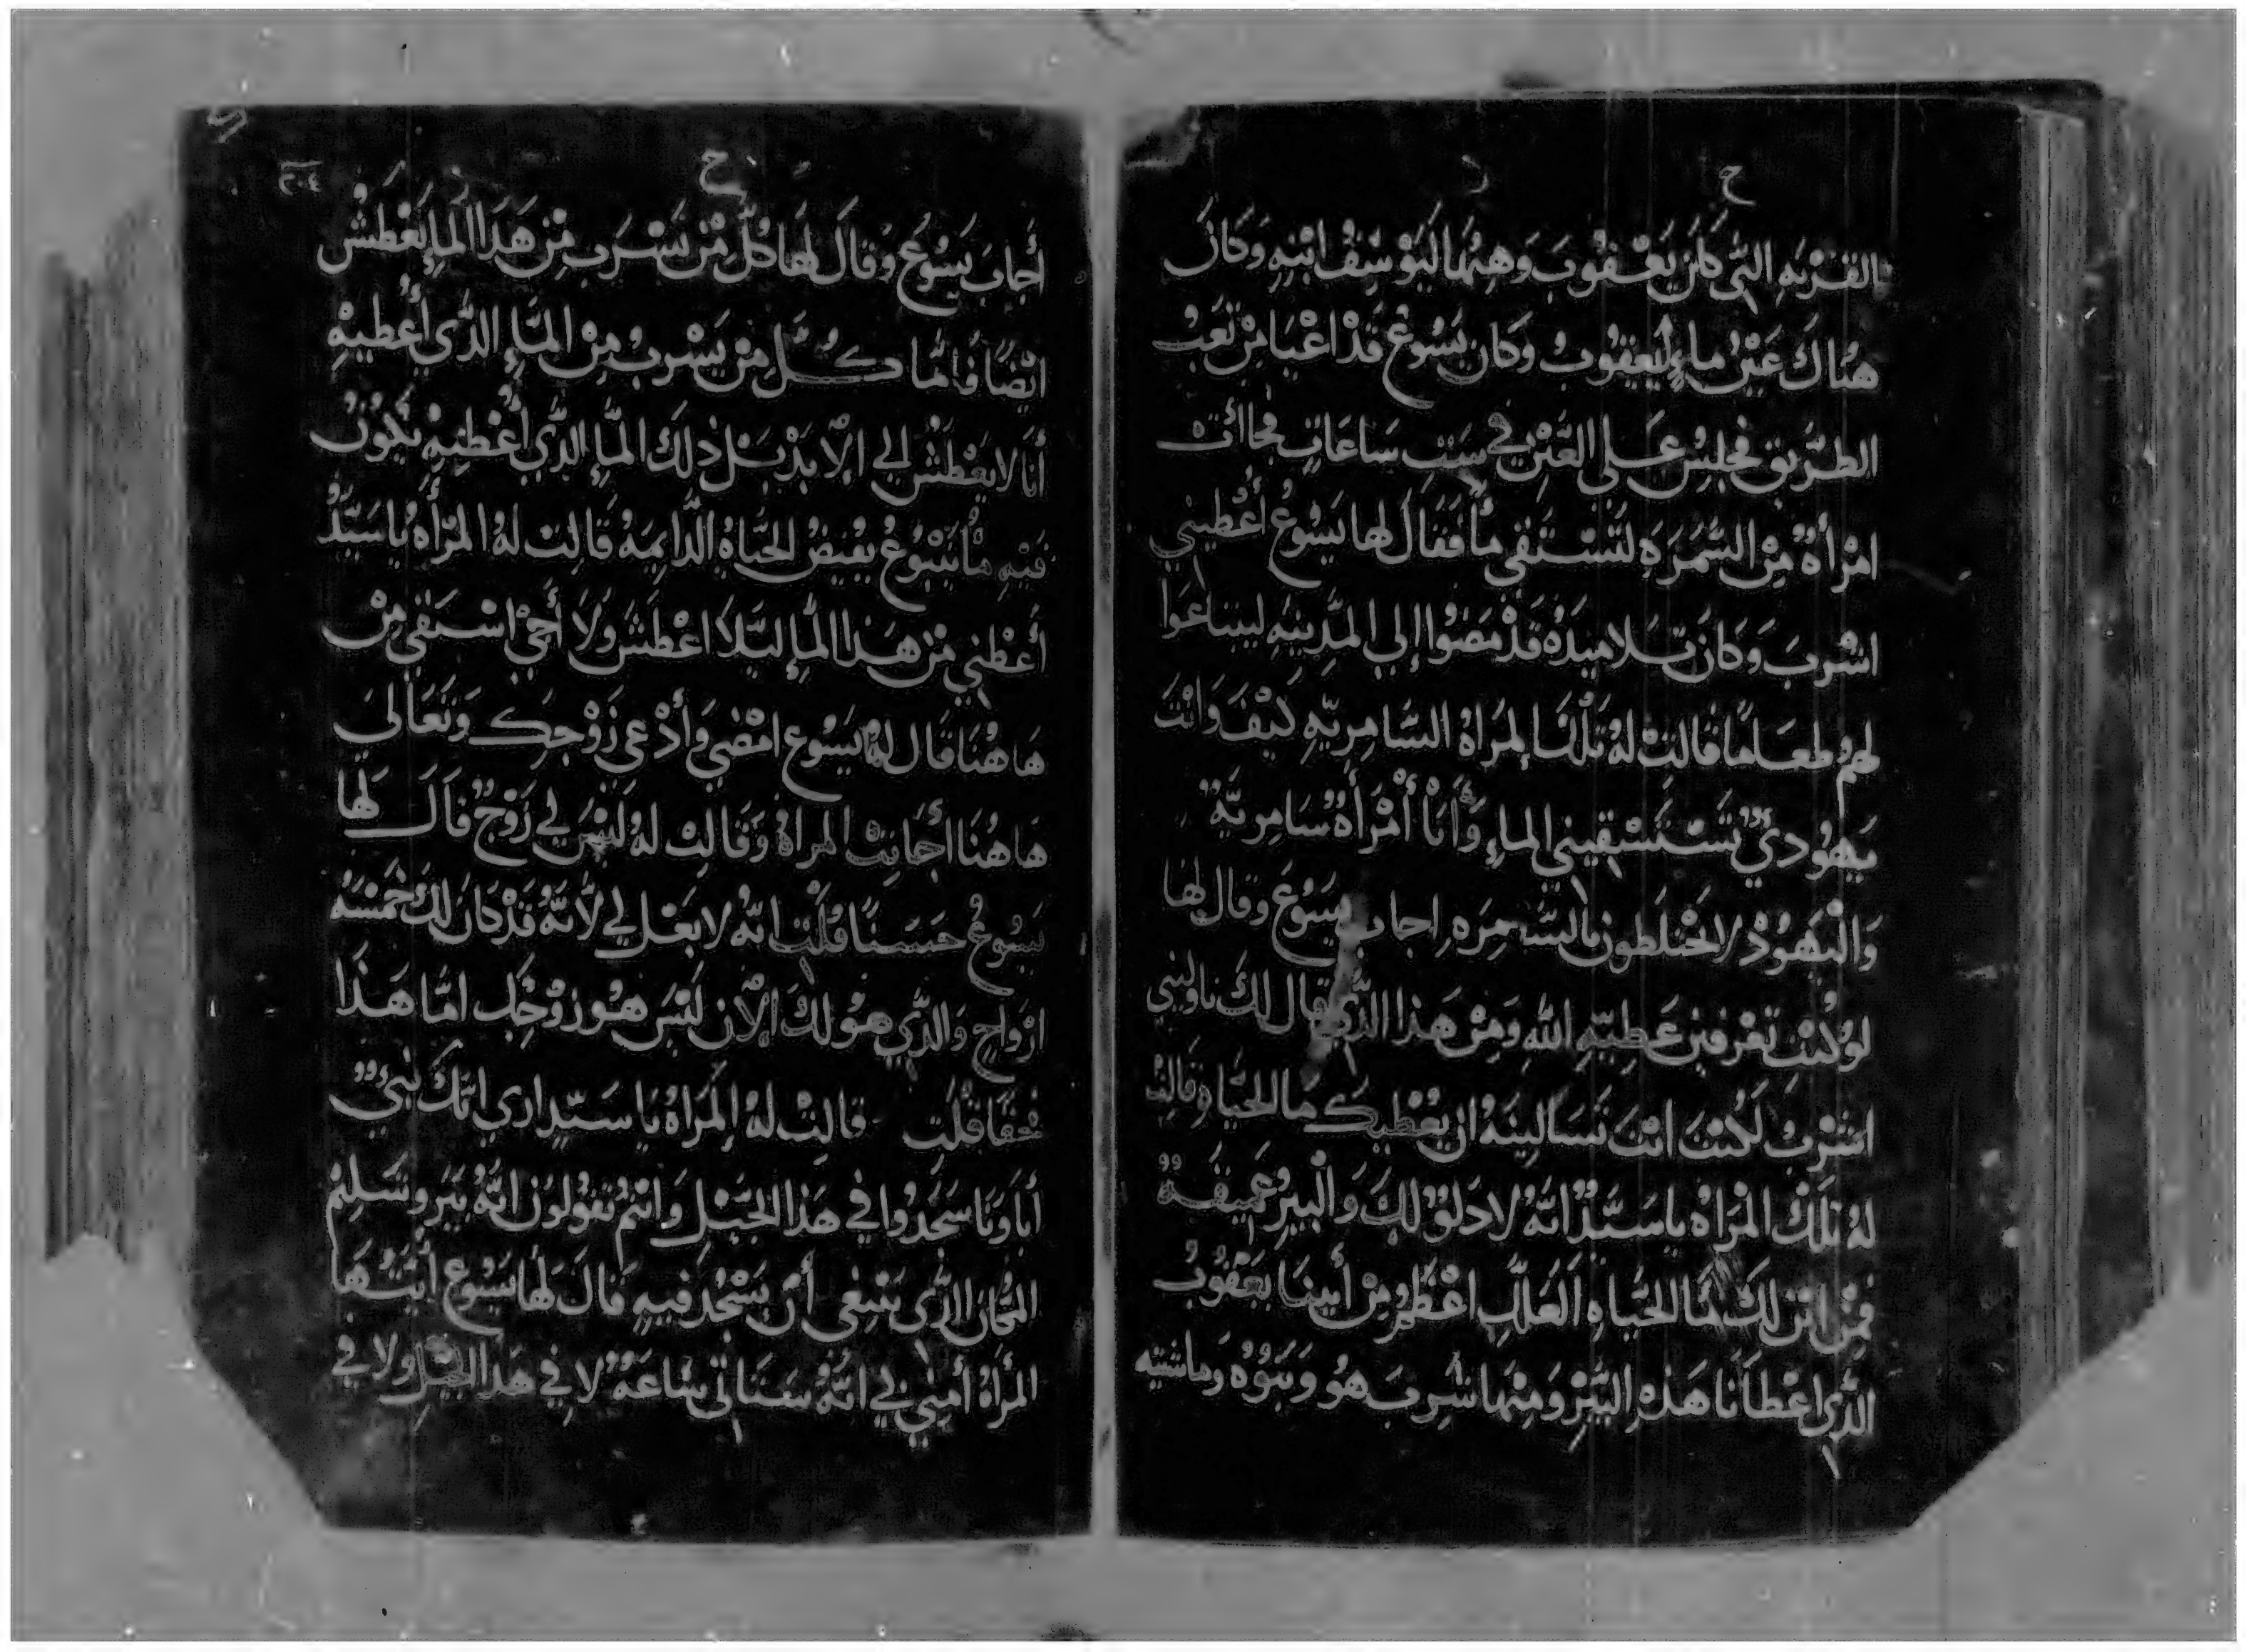 ح ر
القرية التي كان يعقوب وهبها ليوسف ابنه وكان
هناك عين ماء ليعقوب وكان يسوع قد اعيا من تعب
الطريق فجلس على العين في ست ساعات فجاأت
امرأة من السمرة لتستقي ما فقال لها يسوع أعطيني
اشرب وكان تلاميذه قد مضوا إلي المدينه ليبتاعوا
لهم طعاما قالت له تلك المراة السامريه كيف وانت
يهودي تستسقيني الماء وأنا أمرأة سامرية
واليهود لا تختلطون بالسمره اجاب يسوع وقال لها
لو كنت تعرفين عطيه الله ومن هذا الذي قال لك ناوليني
اشرب لكنت انت تسالينه ان يعطيك ما الحيا قالت
له تلك المراه يا سيد انه لا دلو لك والبير عميقة
فمن اين لك ما الحياه العلك اعظم من أبينا يعقوب
الذي اعطانا هذه البير ومنها شرب هو وبنوه وماشيته
ح
أجاب يسوع وقال لها كل من يشرب من هذا الماء يعطش
ايضا فاما كل من يشرب من الماء الذي أعطيه
أنا لا يعطش الي الابد بل ذلك الماء الذي أعطيه يكون
فيه ينبوع يفيض الحياه الدايمه قالت له المرأه يا سيد
أعطني من هذا الماء ليلا اعطش ولا أجي استقي من
هاهنا قال لها يسوع امضي وأدعي زوجك وتعالي
هاهنا أجابت المراة وقالت له ليس لي زوج قال لها
يسوع حسنا قلت انه لا بعل لي لأنه قد كان لك خمسه
ازواج والذي هو لك الان ليس هو زوجك اما هذا
فحقا قلت قالت له المراة يا سيد اري انك نبي
أباونا سجدوا في هذا الجبل وانتم تقولون انه بيروشليم
المكان الذي ينبغي أن يسجد فيه قال لها يسوع ايتها
المرأة أمني لي انه ستاتي ساعة لا في هذا الجبل ولا في